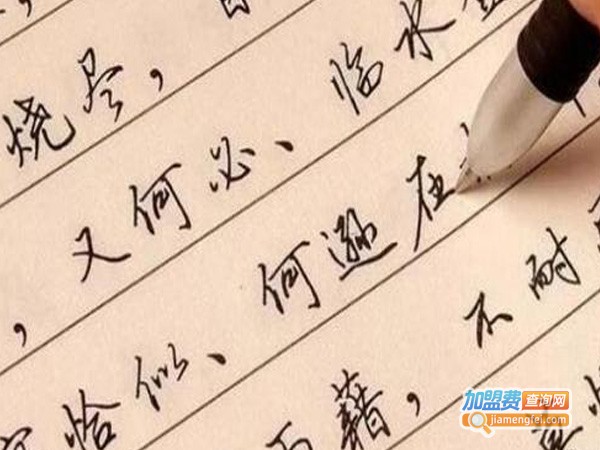 烧尽，
，又何必、临水
恰似、何逊在
雨藉，不耐
加盟费查询网
jiamengfei.com